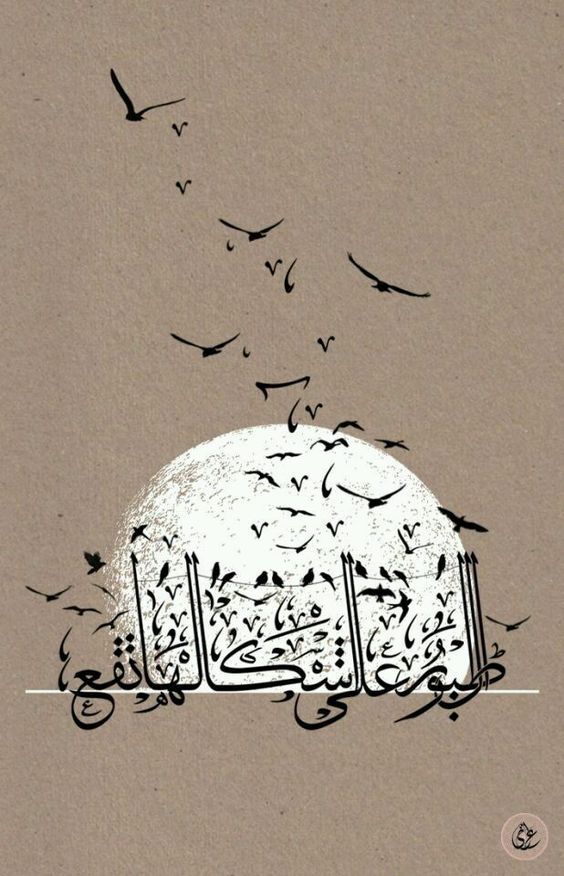 الطيور على أشكالها تقع